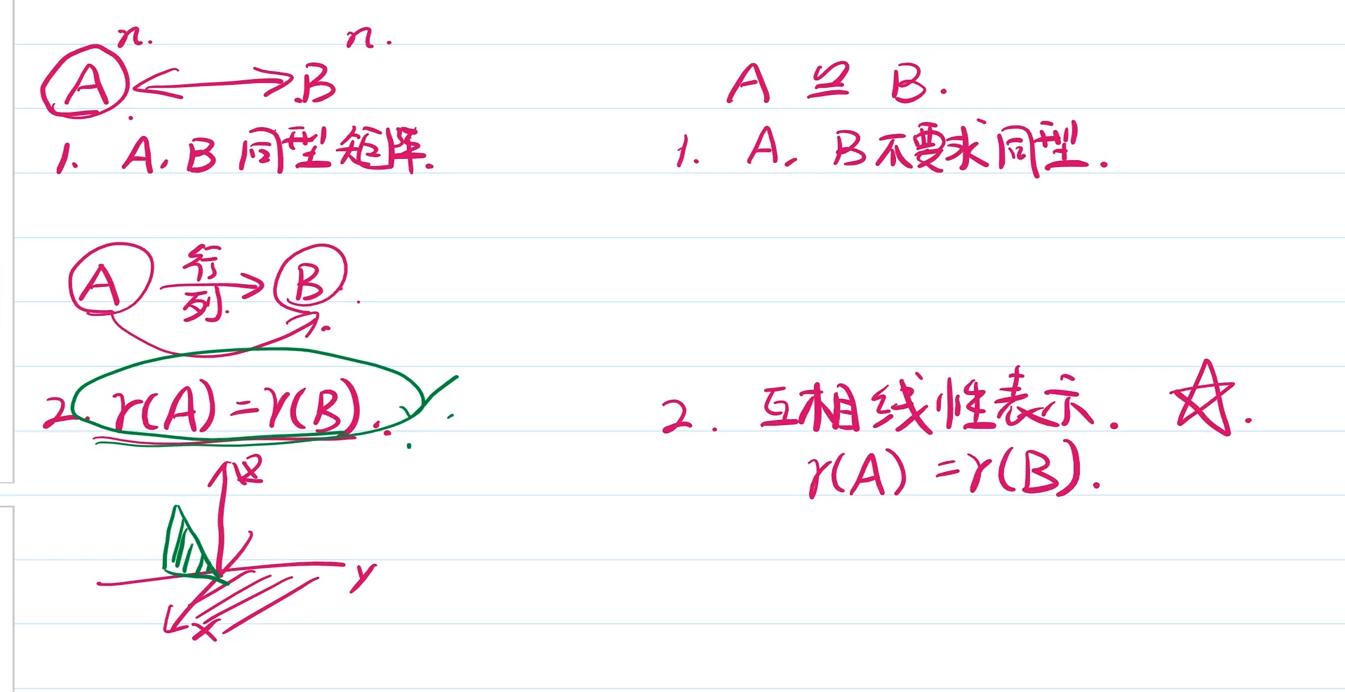 n. n.
A ⟷ B
1. A, B 同型矩阵.
A 行 列 → B.
2. r(A) = r(B).
z
y
x
A ≌ B.
1. A, B 不要求同型.
2. 互相线性表示. ☆.
r(A) = r(B).